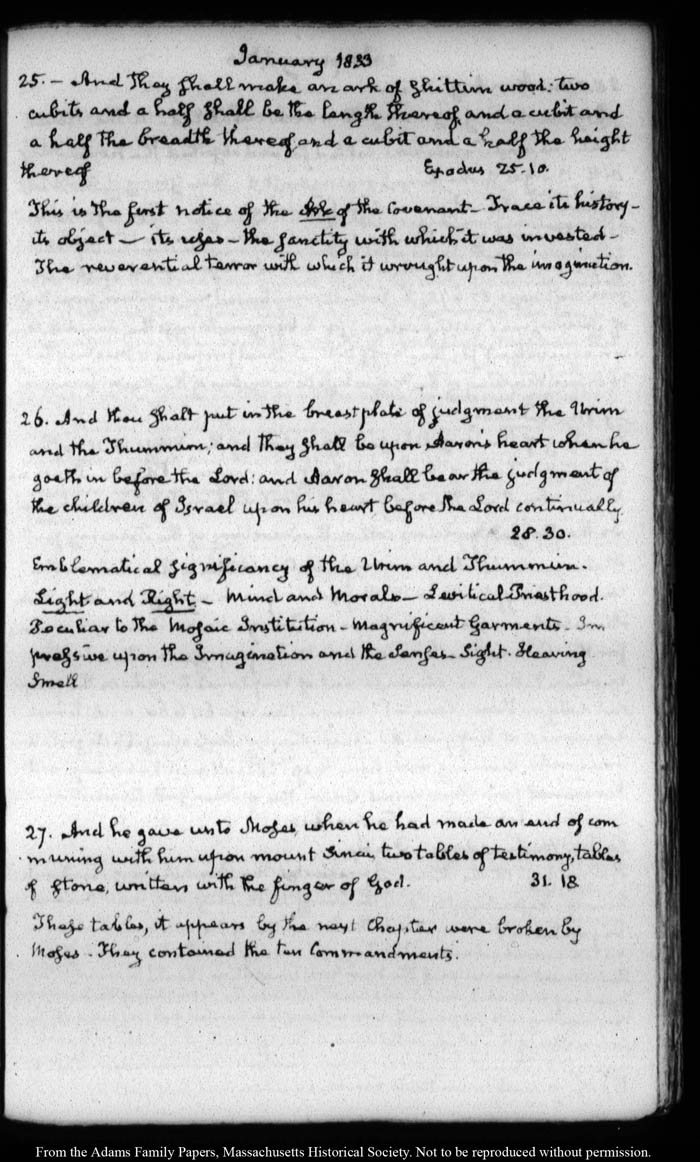 January 1833
25. – And they shall make an ark of shittim wood: two
cubits and a half shall be the length thereof, and a cubit and
a half the breadth thereof and a cubit and a half the height
thereof Exodus 25.10.
This is the first notice of the Ark of the Covenant – Trace its history –
its object – its uses – the sanctity with which it was invested –
The reverential terror with which it wrought upon the imagination.
26. And thou shalt put in the breastplate of judgment the Urim
and the Thummim; and they shall be upon Aaron's heart when he
goeth in before the Lord: and Aaron shall bear the judgment of
the children of Israel upon his heart before the Lord continually
28.30.
Emblematical significancy of the Urim and Thummim.
Light and Right – Mind and Morals – Levitical Priesthood.
Peculiar to the Mosaic Institution – Magnificent Garments – Im
pressive upon the Imagination and the Senses – Sight. Hearing
Smell
27. And he gave unto Moses, when he had made an end of com
muning with him upon mount Sinai, two tables of testimony, tables
of stone, written with the finger of God. 31. 18
These tables, it appears by the next Chapter were broken by
Moses. They contained the ten Commandments.
From the Adams Family Papers, Massachusetts Historical Society. Not to be reproduced without permission.